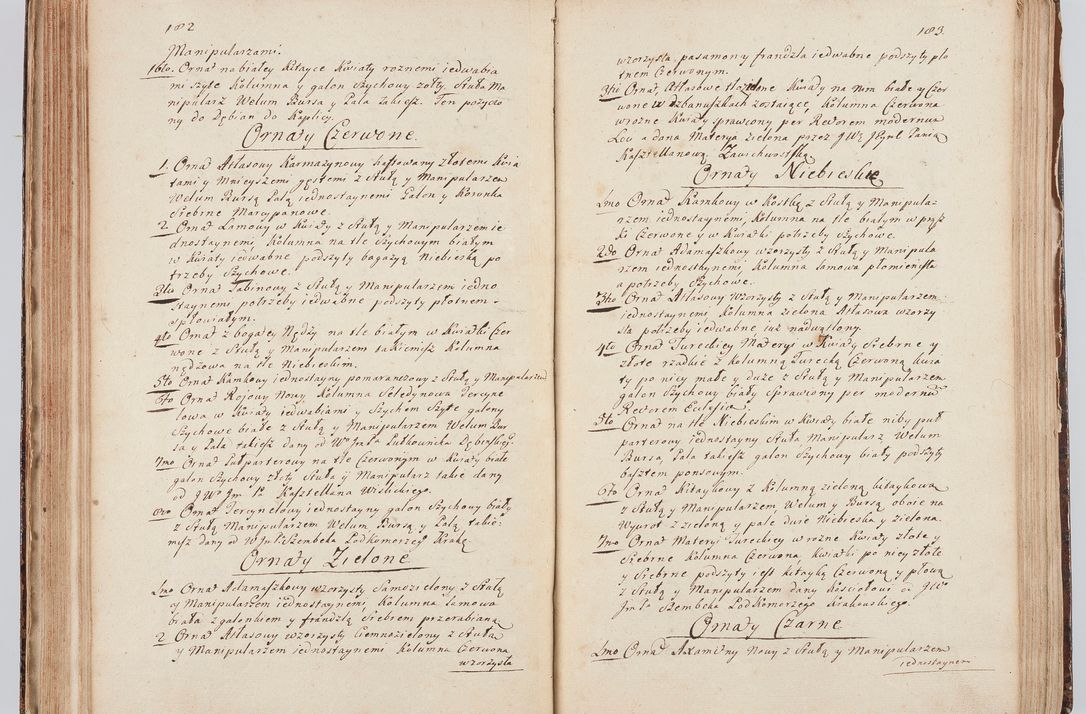 182
Manipularzami.
16to. Ornat na białey kitayce kwiaty roznemi iedwabia
mi szyte kolumna y galon szychowy zołty, stuła Ma
nipularz Welum Bursa y Pala takiesz. Ten pozyczo
ny do Dębian do Kaplicy.
Ornaty Czerwone.
1. Ornat Atłasowy karmazynowy haftowany złotemi kwia
tami y mnieyszemi gęstemi z stułą y Manipularzem
Welum Bursą Palą iednostaynemi Galon y koronka
srebrne Marcypanowe.
2. Ornat Lamowy w kwiaty z stułą y Manipularzem ie
dnostaynemi, kolumna na tle szychowym białym
w kwiaty iedwabne podszyty bagazyą Niebieską po
trzeby szychowe.
3tio Ornat Tabinowy z stułą y Manipularzem iedno
staynemi potrzeby iedwabne podszyty płotnem
spłowiałym.
4to Ornat z bogatey Nędzy na tle białym w kwiatki czer
wone z stułą y Manipularzem takiemisz kolumna
nędzowa na tle Niebieskim.
5to Ornat kamkowy iednostayny pomaranczowy z stułą y Manipularzem
6to Ornat Rojowy Nowy kolumna seledynowa Tercyne
lowa w kwiaty iedwabiami y szychem szyte galony
szychowe białe z stułą y Manipularzem Welum Bur
sa y Pala takiesz dany od Wo Jmci Lutkownika Dębinskiego.
7mo Ornat Lutparterowy na tle Czerwonym w kwiaty białe
galon szychowy złoty stuła y Manipularz takie dany
od J Wo Jm Pa Kasztellana Wislickiego.
8vo Ornat Tercynelowy iednostayny galon szychowy biały
z stułą Manipularzem Welum Bursą y Palą takie-
misz dany od W Jmci Szembeka Podkomorzego Krakgo.
Ornaty Zielone
1mo Ornat Adamaszkowy wzorzysty samozielony z stułą
y Manipularzem iednostaynemi kolumna lamowa
biała z galonkiem y frandzlą srebrem przerabianą
2 Ornat Atłasowy wzorzysty ciemnozielony z stułą
y Manipularzem iednostaynemi kolumna Czerwona
wzorzysta
183
wzorzysta, pasamony frandzla iedwabne podszyty pło
tnem Czerwonym.
3tii Ornat, Atłasowe zielone kwiaty na nim białe y czer
wone w dzbanuszkach zostaiące, kolumna Czerwona
w rozne kwiaty sprawiony per Rectorem modernum
Loci a dana Materya zielona przez J W Jmci Panią
Kasztellanową Zawichwostką
Ornaty Niebieskie
1mo Ornat kamkowy w kostkę z stułą y Manipula-
rzem iednostaynemi, kolumna na tle białym w prąż
ki Czerwone y w kwiatki potrzeby szychowe.
2do Ornat Adamaszkowy wzorzysty z stułą y Manipula
rzem iednostaynemi, kolumna lamowa płomienista
a potrzeby szychowe.
3tio Ornat Atłasowy wzorzysty z stułą y Manipularzem
iednostaynemi kolumna zielona Atłasowa wzorzy
sta potrzeby iedwabne iuz nadwątlony.
4to Ornat Tureckiey Materyi w kwiaty srebrne y
złote rzadkie z kolumną Turecką Czerwoną kwia
ty po niey małe y duze z stułą y Manipularzem
galon szychowy biały sprawiony per modernum
Rectorem Eclesiæ.
5to Ornat na tle Niebieskim w kwiaty białe niby put
parterowy iednostayny stuła Manipularz Welum
Bursa, Pala takiesz galon szychowy biały podszyty
bosztem ponsowym.
6to Ornat kitaykowy z kolumną zieloną kitaykową
z stułą y Manipularzem, Welum y Bursą oboie na
Wywrot z zieloną y pale dwie Niebieska y zielona.
7mo Ornat Materyi Tureckiey w rozne kwiaty złote y
srebrne kolumna Czerwona kwiatki po niey złote
y srebrne podszyty iest kitayką Czerwoną y płową
z stułą y Manipularzem dany kosciołowi od J W
Jmci Szembeka Podkomorzego Krakowskiego.
Ornaty Czarne
1mo Ornat Axamitny Nowy z stułą y Manipularzem
iednostaynem